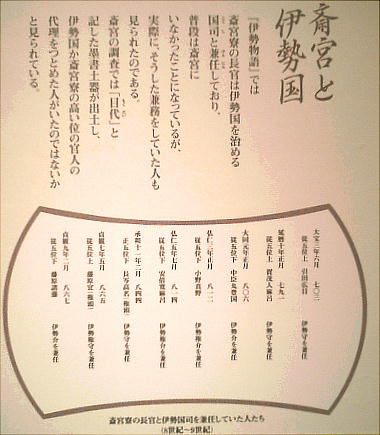 斎宮と
伊勢国
『伊勢物語』では
斎宮寮の長官は伊勢国を治める
国司と兼任しており、
普段は斎宮に
いなかったことになっているが、
実際に、そうした兼務をしていた人も
見られたのである。
斎宮の調査では「目代」と
記した墨書土器が出土し、
伊勢国か斎宮寮の高い位の官人の
代理をつとめた人がいたのではないか
と見られている。
大宝三年六月 七〇三
従五位上 引田広目 伊勢守を兼任
延暦十年正月 七九一
従五位上 賀茂人麻呂 伊勢守を兼任
大同元年正月 八〇六
従五位下 中臣丸豊国 伊勢介を兼任
弘仁三年正月 八一二
従五位下 小野真野 伊勢権介を兼任
弘仁五年七月 八一四
従五位下 安倍寛麻呂 伊勢権介を兼任
承和十一年二月 八四四
正五位下 長岑高名(権頭) 伊勢権守を兼任
貞観七年五月 八六五
従五位下 藤原宜(権頭) 伊勢権守を兼任
貞観九年二月 八六七
従五位下 藤原諸藤 伊勢介を兼任
斎宮寮の長官と伊勢国司を兼任していた人たち
(8世紀~9世紀)